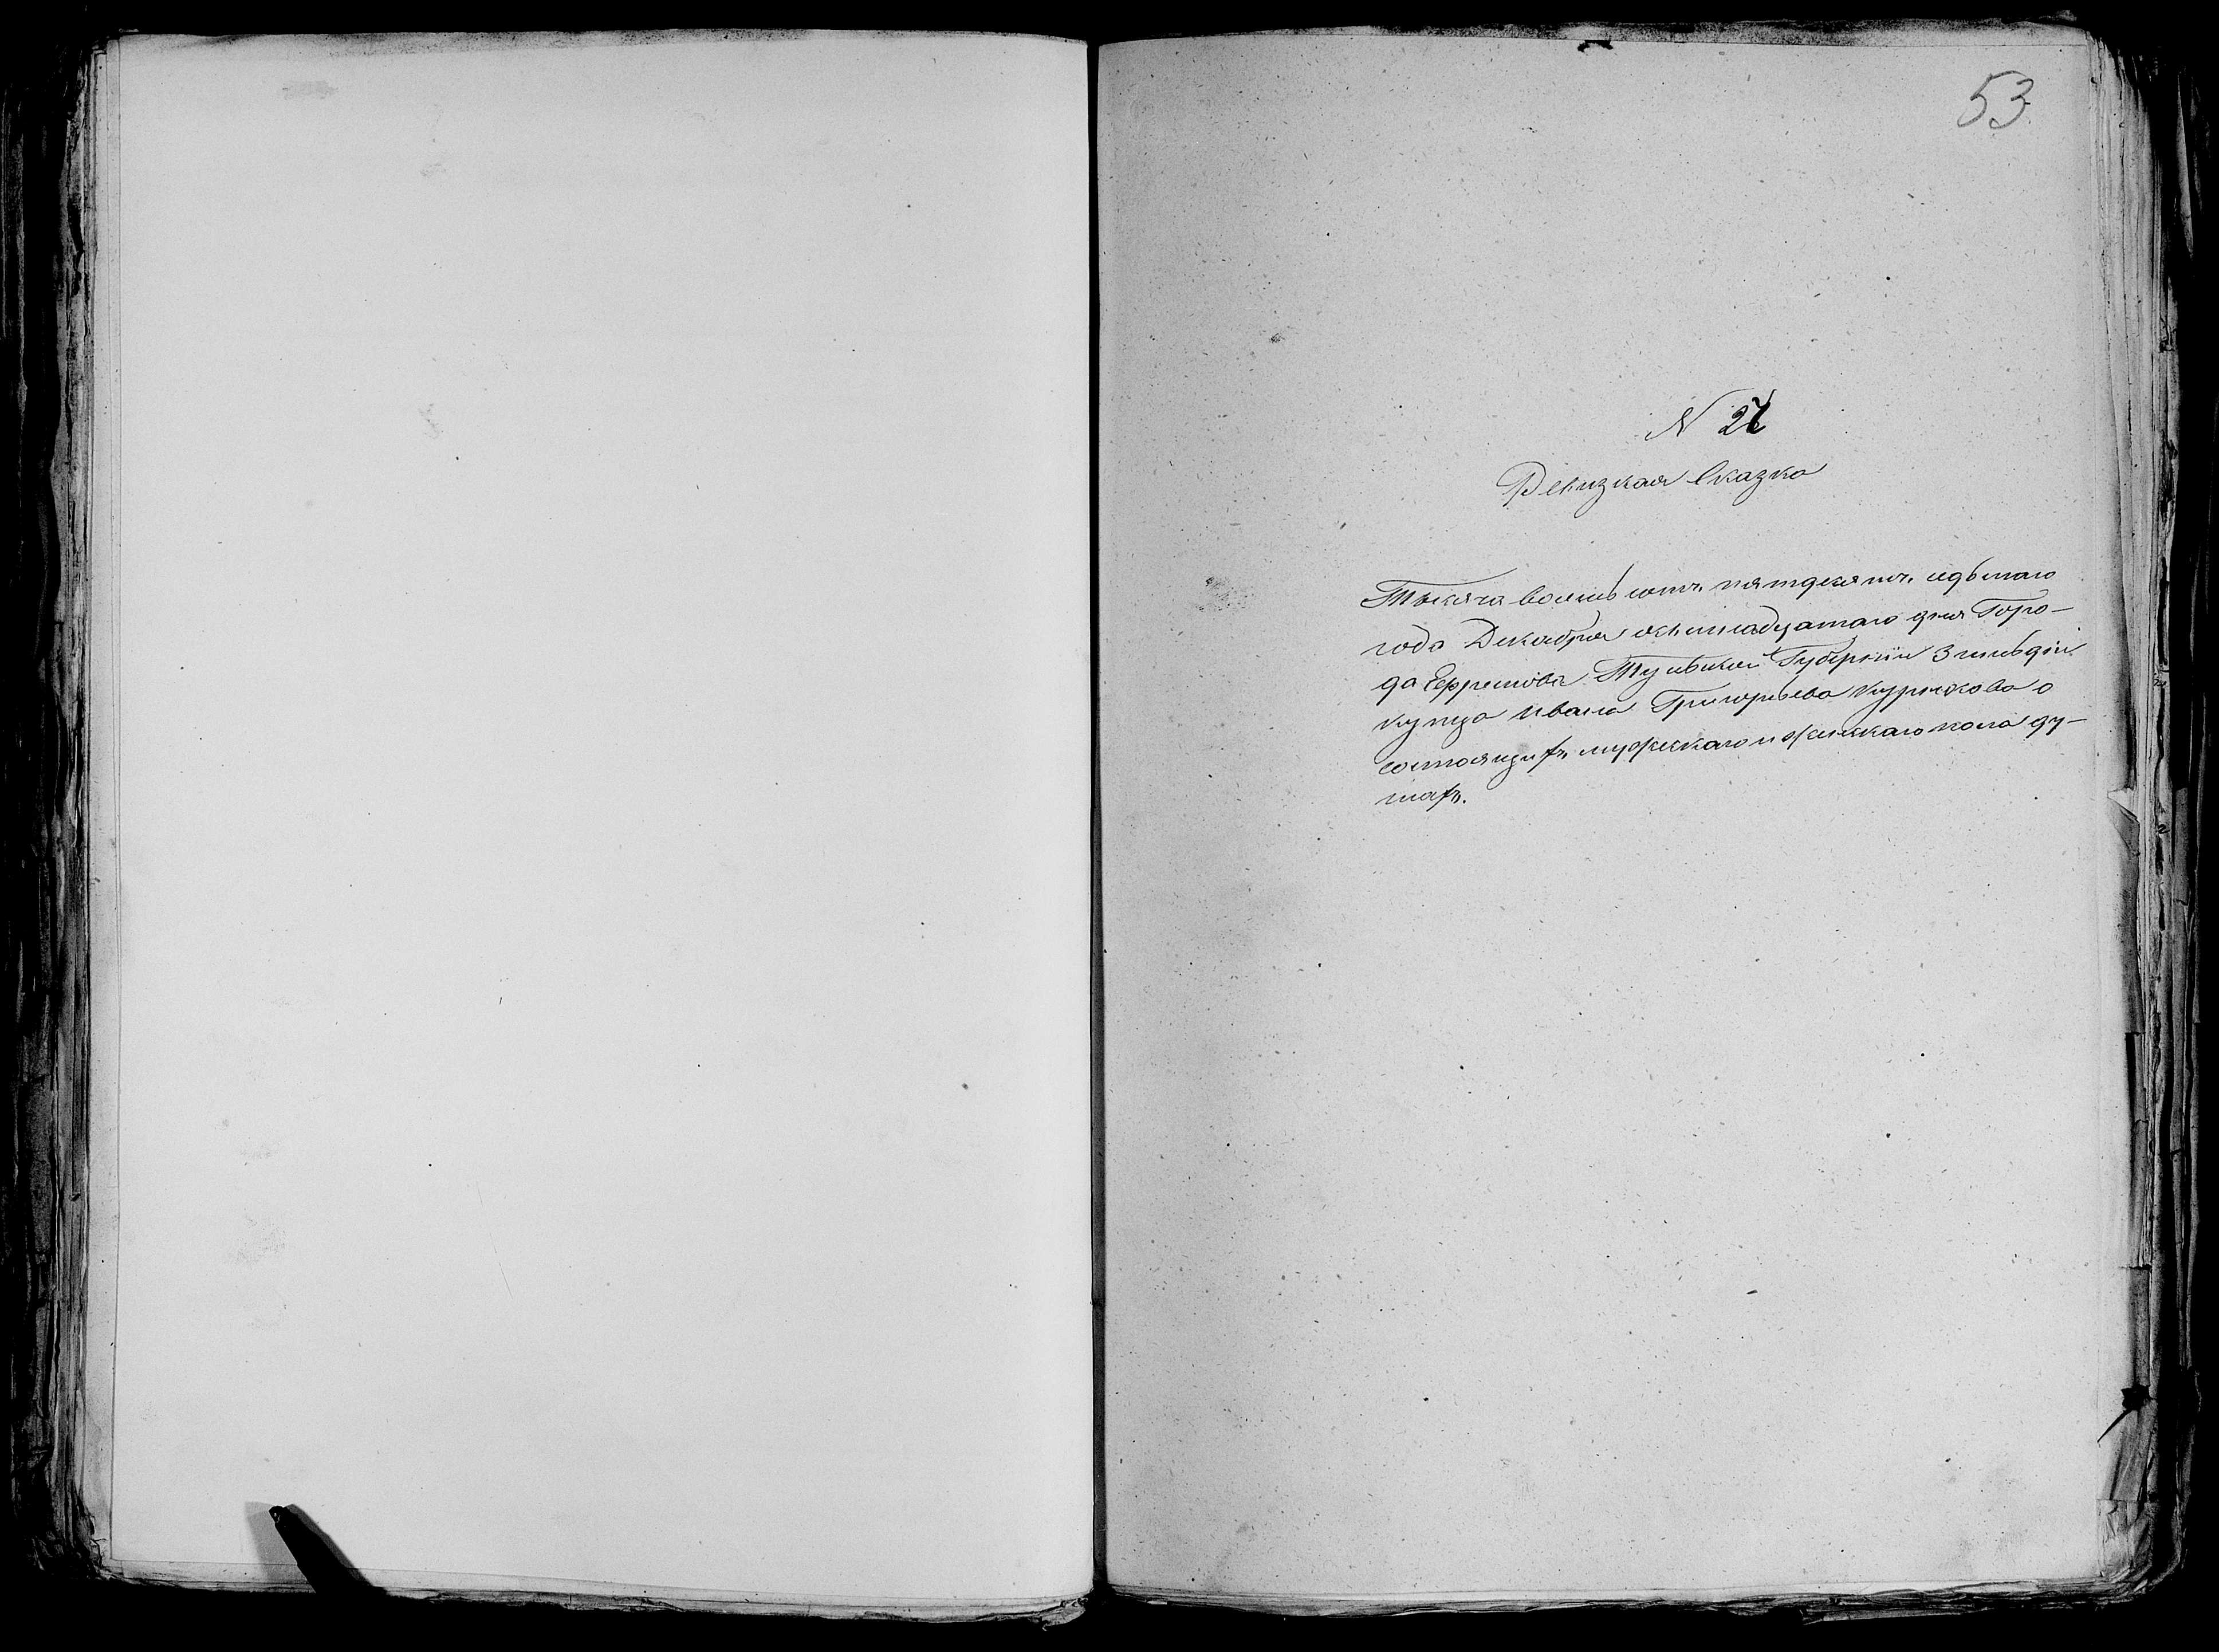 53
N 27
Ревизкая Сказка
Тысяча восемь сотъ пятдесятъ седьмаго
года Декабря дня Горо-
да Ефремова Тульской Губерніи 3 гильдіи
купца Ивана Григорьева Курчкова о
состоящихъ мужескаго и женскаго пола ду-
шахъ.